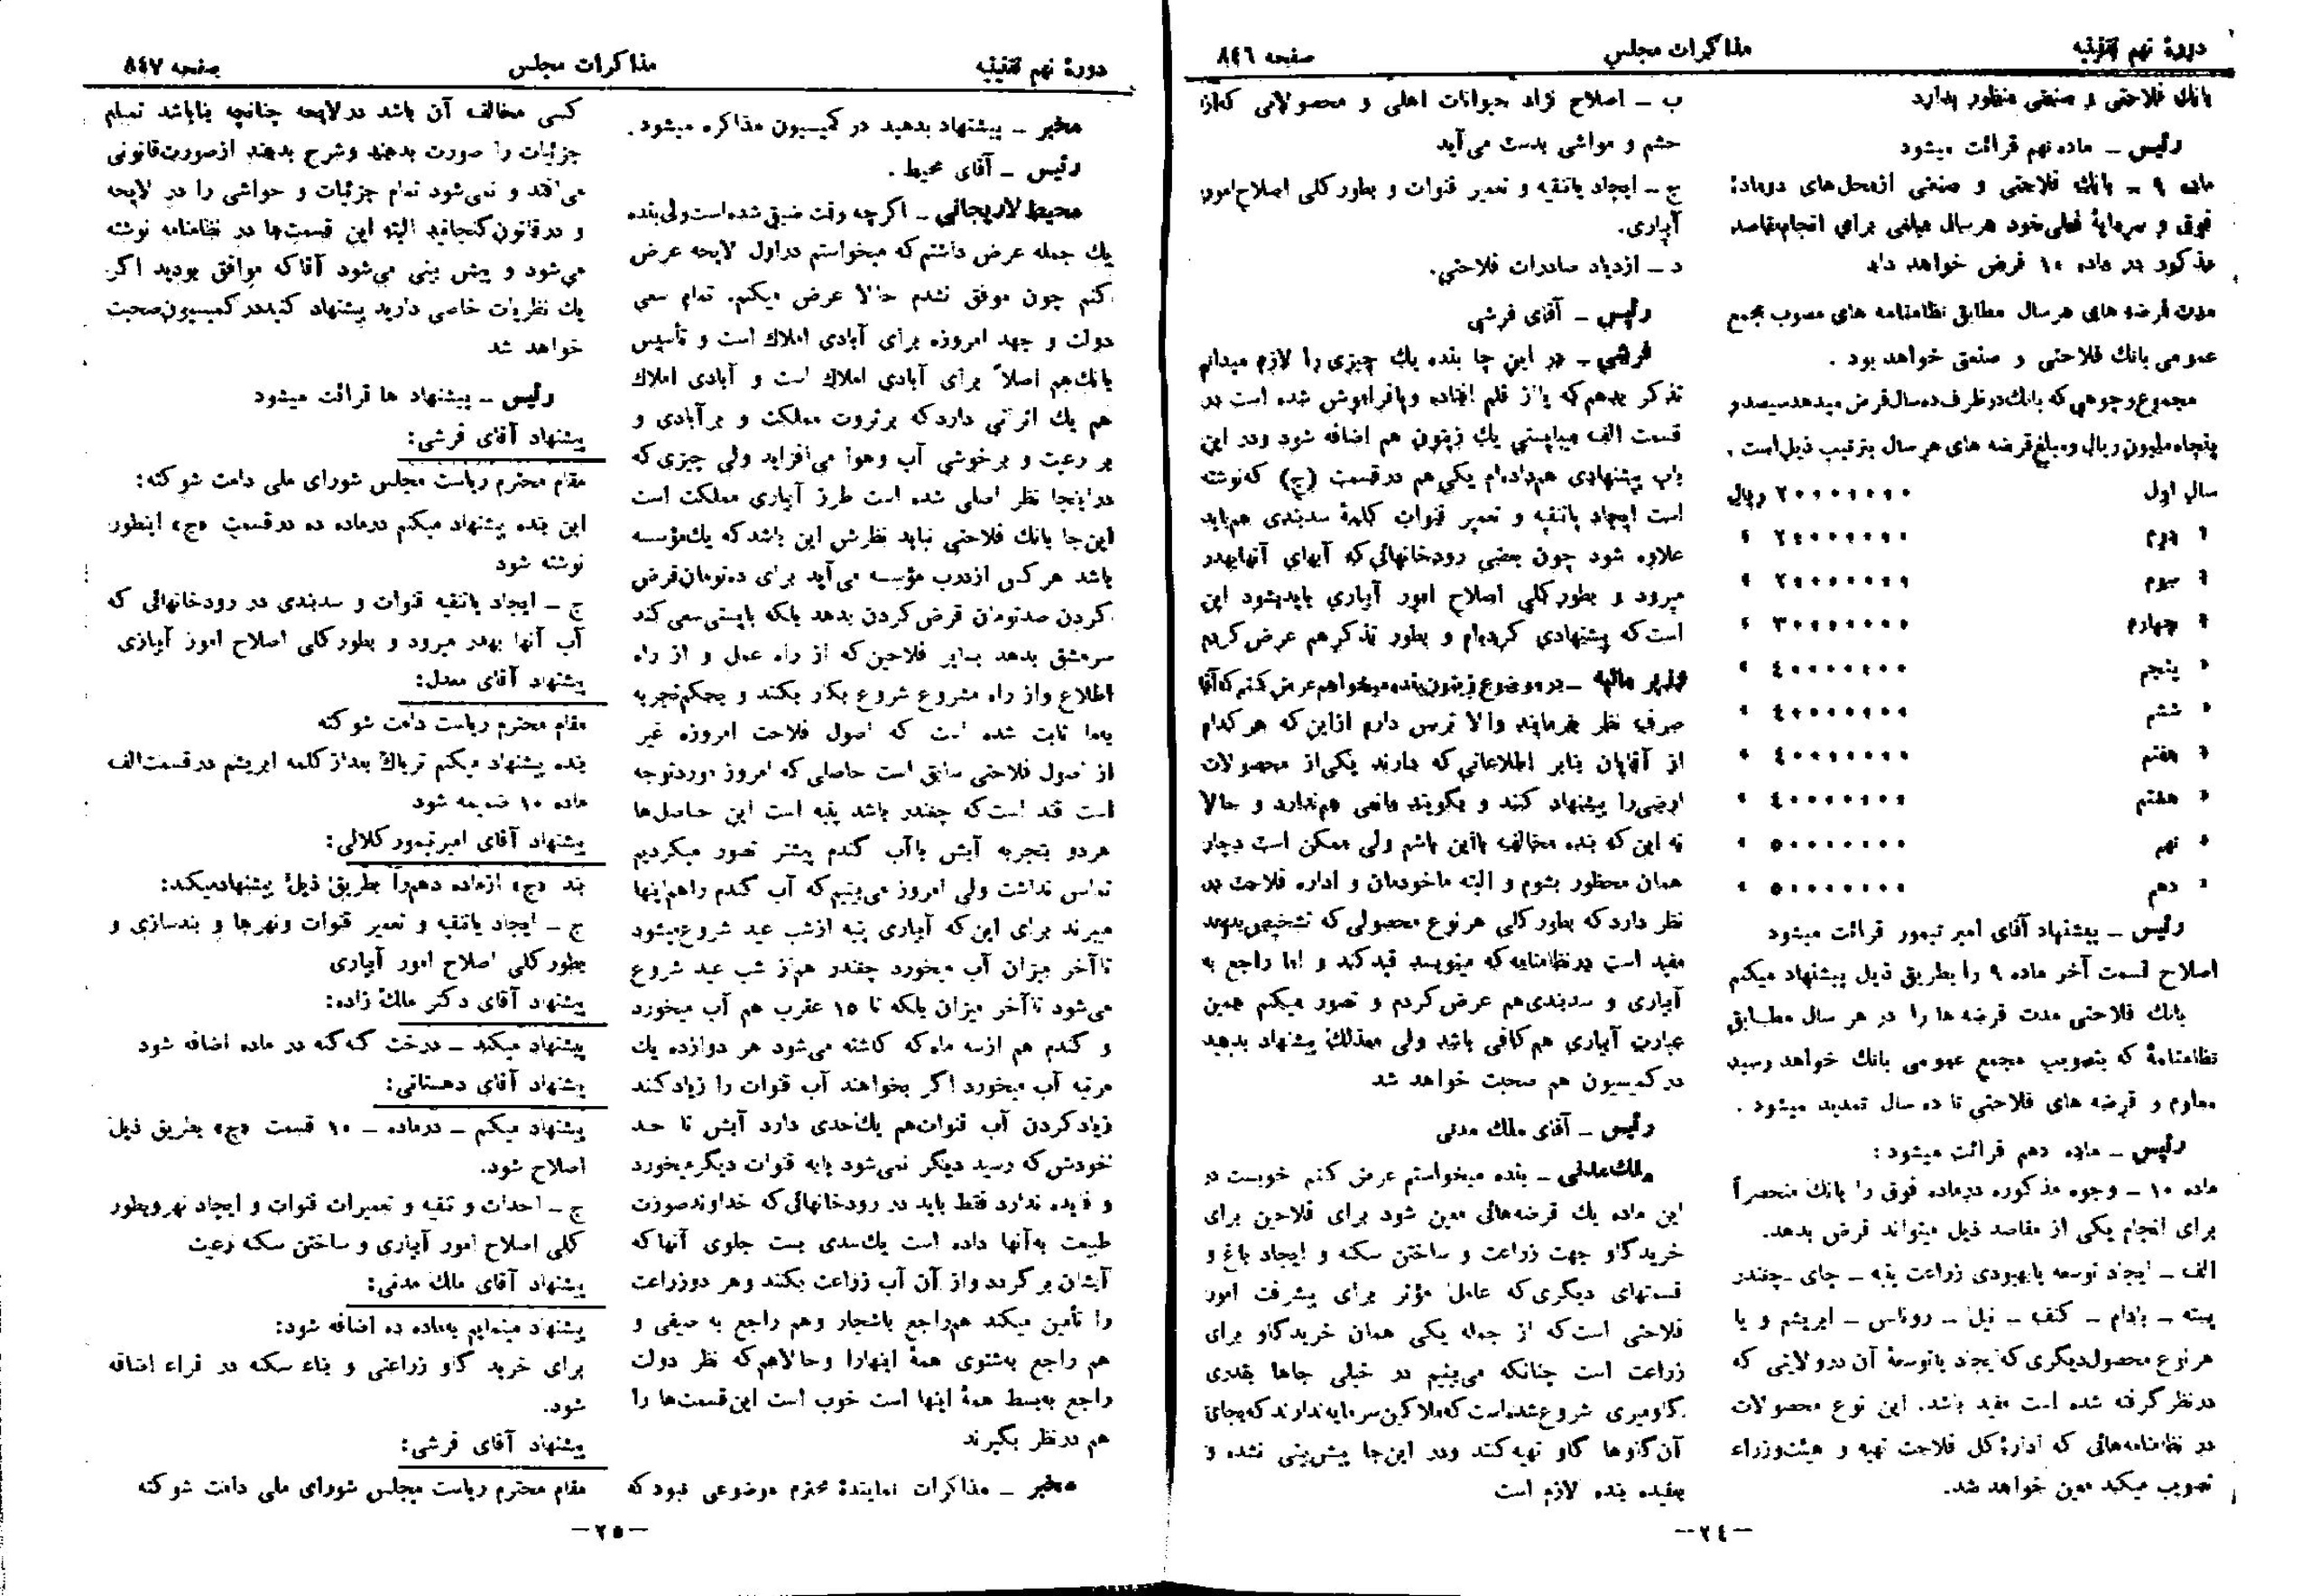 دورهٔ نهم تقنینیه
مذاکرات مجلس
صفحه ۸۴۶
بانک فلاحتی و صنعتی منظور بدارد
رئیس ـ ماده نهم قرائت میشود
ماده ۹ ـ بانک فلاحتی و صنعتی از محل‌های در ماده
فوق و سرمایهٔ فعلی خود هر سال مبلغی برای انجام مقاصد
مذکور در ماده ۱۰ قرض خواهد داد
مدت قرضه های هر سال مطابق نظامنامه های مصوب مجمع
عمومی بانک فلاحتی و صنعتی خواهد بود .
مجموع وجوهی که بانک در ظرف ده سال قرض میدهد سیصد و
پنجاه ملیون ریال و مبلغ قرضه های هر سال بترتیب ذیل است .
سال اول ۲۰۰۰۰۰۰۰ ریال
« دوم ۲۰۰۰۰۰۰۰ «
« سوم ۲۰۰۰۰۰۰۰ «
« چهارم ۳۰۰۰۰۰۰۰ «
« پنجم ۴۰۰۰۰۰۰۰ «
« ششم ۴۰۰۰۰۰۰۰ «
« هفتم ۴۰۰۰۰۰۰۰ «
« هشتم ۴۰۰۰۰۰۰۰ «
« نهم ۵۰۰۰۰۰۰۰ «
« دهم ۵۰۰۰۰۰۰۰ «
رئیس ـ پیشنهاد آقای امیر تیمور قرائت میشود
اصلاح قسمت آخر ماده ۹ را بطریق ذیل پیشنهاد میکنم
بانک فلاحتی مدت قرضه ها را در هر سال مطابق
نظامنامهٔ که بتصویب مجمع عمومی بانک خواهد رسید
معلوم و قرضه های فلاحتی تا ده سال تمدید میشود .
رئیس ـ ماده دهم قرائت میشود :
ماده ۱۰ ـ وجوه مذکوره در ماده فوق را بانک منحصراً
برای انجام یکی از مقاصد ذیل میتواند قرض بدهد.
الف ـ ایجاد توسعه یا بهبودی زراعت پنبه ـ چای ـ چغندر
پسته ـ بادام ـ کنف ـ نیل ـ روناس ـ ابریشم و یا
هر نوع محصول دیگری که ایجاد یا توسعهٔ آن در ولایتی که
در نظر گرفته شده است مفید باشد. این نوع محصولات
در نظامنامه‌هائی که ادارهٔ کل فلاحت تهیه و هیئت وزراء
تصویب میکند معین خواهد شد.
ب ـ اصلاح نژاد حیوانات اهلی و محصولاتی که از
حشم و مواشی بدست می‌آید
ج ـ ایجاد یا تنقیه و تعمیر قنوات و بطور کلی اصلاح امور
آبیاری.
د ـ ازدیاد صادرات فلاحتی.
رئیس ـ آقای فرشی
فرشی ـ در این جا بنده یک چیزی را لازم میدانم
تذکر بدهم که یا از قلم افتاده و یا فراموش شده است در
قسمت الف میبایستی یک زیتون هم اضافه شود و در این
باب پیشنهادی هم داده‌ام یکی هم در قسمت (ج) که نوشته
است ایجاد یا تنقیه و تعمیر قنوات کلمهٔ سدبندی هم باید
علاوه شود چون بعضی رودخانهائی که آبهای آنها بهدر
میرود و بطور کلی اصلاح امور آبیاری باید بشود این
است که پیشنهادی کرده‌ام و بطور تذکر هم عرض کردم
وزیر مالیه ـ در موضوع زیتون بنده میخواهم عرض کنم که آقا
صرف نظر بفرمایند والا ترس دارم از این که هر کدام
از آقایان بنابر اطلاعاتی که دارند یکی از محصولات
ارضی را پیشنهاد کنند و بگویند مانعی هم ندارد و حالا
نه این که بنده مخالف با این باشم ولی ممکن است دچار
همان محظور بشوم و البته ما خودمان و اداره فلاحت در
نظر دارد که بطور کلی هر نوع محصولی که تشخیص بدهد
مفید است در نظامنامه که مینویسد قید کند و اما راجع به
آبیاری و سدبندی هم عرض کردم و تصور میکنم همین
عبارت آبیاری هم کافی باشد ولی معذلک پیشنهاد بدهید
در کمیسیون هم صحبت خواهد شد
رئیس ـ آقای ملک مدنی
ملک مدنی ـ بنده میخواستم عرض کنم خوبست در
این ماده یک قرضه‌هائی معین شود برای فلاحین برای
خرید گاو جهت زراعت و ساختن سکنه و ایجاد باغ و
قسمتهای دیگری که عامل مؤثر برای پیشرفت امور
فلاحتی است که از جمله یکی همان خرید گاو برای
زراعت است چنانکه می‌بینیم در خیلی جاها بقدری
گاومیری شروع شده است که ملاکین سرمایه ندارند که بجای
آن گاوها گاو تهیه کنند و در این جا پیش‌بینی نشده و
بعقیده بنده لازم است
ـ ۲۴ ـ
دورهٔ نهم تقنینیه
مذاکرات مجلس
صفحه ۸۴۷
مخبر ـ پیشنهاد بدهید در کمیسیون مذاکره میشود .
رئیس ـ آقای محیط .
محیط لاریجانی ـ اگرچه وقت ضیق شده است ولی بنده
یک جمله عرض داشتم که میخواستم در اول لایحه عرض
کنم چون موفق نشدم حالا عرض میکنم. تمام سعی
دولت و جهد امروزه برای آبادی املاک است و تأسیس
بانک هم اصلاً برای آبادی املاک است و آبادی املاک
هم یک اثراتی دارد که بر ثروت مملکت و بر آبادی و
بر رعیت و بر خوشی آب و هوا می‌افزاید ولی چیزی که
در اینجا نظر اصلی شده است طرز آبیاری مملکت است
این جا بانک فلاحتی نباید نظرش این باشد که یک مؤسسه
باشد هر کس از درب مؤسسه می‌آید برای ده تومان قرض
کردن صد تومان قرض کردن بدهد بلکه بایستی سعی کند
سرمشق بدهد بسایر فلاحین که از راه عمل و از راه
اطلاع و از راه مشروع شروع بکار بکنند و بحکم تجربه
بما ثابت شده است که اصول فلاحت امروزه غیر
از اصول فلاحتی سابق است حاصلی که امروز مورد توجه
است قند است که چغندر باشد پنبه است این حاصل‌ها
هردو بتجربه آبش با آب گندم پیشتر تصور میکردیم
تماس نداشت ولی امروز می‌بینیم که آب گندم را هم اینها
میبرند برای این که آبیاری پنبه از شب عید شروع میشود
تا آخر میزان آب میخورد چغندر هم از شب عید شروع
می‌شود تا آخر میزان بلکه تا ۱۵ عقرب هم آب میخورد
و گندم هم از سه ماه که کاشته می‌شود هر دوازده یک
مرتبه آب میخورد اگر بخواهند آب قنوات را زیاد کنند
زیاد کردن آب قنوات هم یک حدی دارد آبش تا حد
خودش که رسید دیگر نمی‌شود بابه قنوات دیگر میخورد
و فایده ندارد فقط باید در رودخانهائی که خداوند صورت
طبیعت به آنها داده است یک سدی بست جلوی آنها که
آبشان برگردد و از آن آب زراعت بکنند و هر دو زراعت
را تأمین میکند هم راجع باشجار و هم راجع به صیفی و
هم راجع به شتوی همهٔ اینها را و حالا هم که نظر دولت
راجع به بسط همهٔ اینها است خوب است این قسمت‌ها را
هم در نظر بگیرند
مخبر ـ مذاکرات نمایندهٔ محترم موضوعی نبود که
کسی مخالف آن باشد در لایحه چنانچه بنا باشد تمام
جزئیات را صورت بدهند و شرح بدهند از صورت قانونی
می‌افتد و نمی‌شود تمام جزئیات و حواشی را در لایحه
و در قانون گنجانید البته این قسمت‌ها در نظامنامه نوشته
می‌شود و پیش بینی می‌شود آقا که موافق بودید اگر
یک نظریات خاصی دارید پیشنهاد کنید در کمیسیون صحبت
خواهد شد
رئیس ـ پیشنهاد ها قرائت میشود
پیشنهاد آقای فرشی:
مقام محترم ریاست مجلس شورای ملی دامت شوکته:
این بنده پیشنهاد میکنم در ماده ده در قسمت «ج» اینطور
نوشته شود
ج ـ ایجاد یا تنقیه قنوات و سدبندی در رودخانهائی که
آب آنها بهدر میرود و بطور کلی اصلاح امور آبیاری
پیشنهاد آقای معدل:
مقام محترم ریاست دامت شوکته
بنده پیشنهاد میکنم تریاک بعد از کلمه ابریشم در قسمت الف
ماده ۱۰ ضمیمه شود
پیشنهاد آقای امیرتیمور کلالی:
بند «ج» از ماده دهم را بطریق ذیل پیشنهاد میکند:
ج ـ ایجاد یا تنقیه و تعمیر قنوات و نهرها و بندسازی و
بطور کلی اصلاح امور آبیاری
پیشنهاد آقای دکتر ملک زاده:
پیشنهاد میکند ـ درخت گنه گنه در ماده اضافه شود
پیشنهاد آقای دهستانی:
پیشنهاد میکنم ـ در ماده ـ ۱۰ قسمت «ج» بطریق ذیل
اصلاح شود.
ج ـ احداث و تنقیه و تعمیرات قنوات و ایجاد نهر و بطور
کلی اصلاح امور آبیاری و ساختن سکنه رعیت
پیشنهاد آقای ملک مدنی:
پیشنهاد مینمایم بماده ده اضافه شود:
برای خرید گاو زراعتی و بناء سکنه در قراء اضافه
شود.
پیشنهاد آقای فرشی:
مقام محترم ریاست مجلس شورای ملی دامت شوکته
ـ ۲۵ ـ